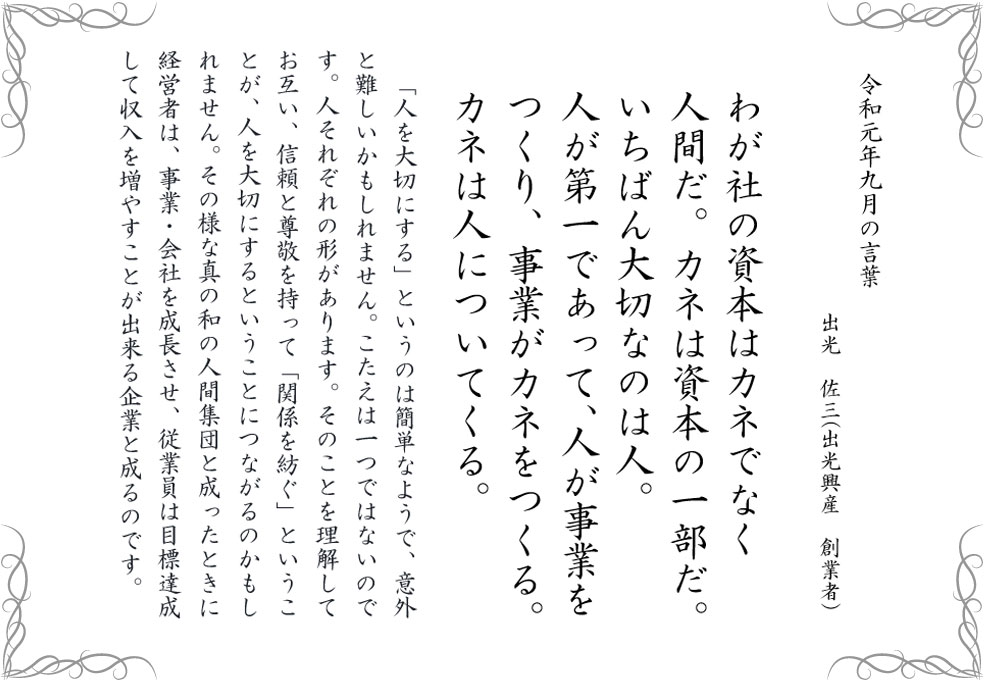 令和元年九月の言葉
出光　佐三（出光興産　創業者）
わが社の資本はカネでなく
人間だ。カネは資本の一部だ。
いちばん大切なのは人。
人が第一であって、人が事業を
つくり、事業がカネをつくる。
カネは人についてくる。
「人を大切にする」というのは簡単なようで、意外
と難しいかもしれません。こたえは一つではないので
す。人それぞれの形があります。そのことを理解して
お互い、信頼と尊敬を持って「関係を紡ぐ」というこ
とが、人を大切にするということにつながるのかもし
れません。その様な真の和の人間集団と成ったときに
経営者は、事業・会社を成長させ、従業員は目標達成
して収入を増やすことが出来る企業と成るのです。